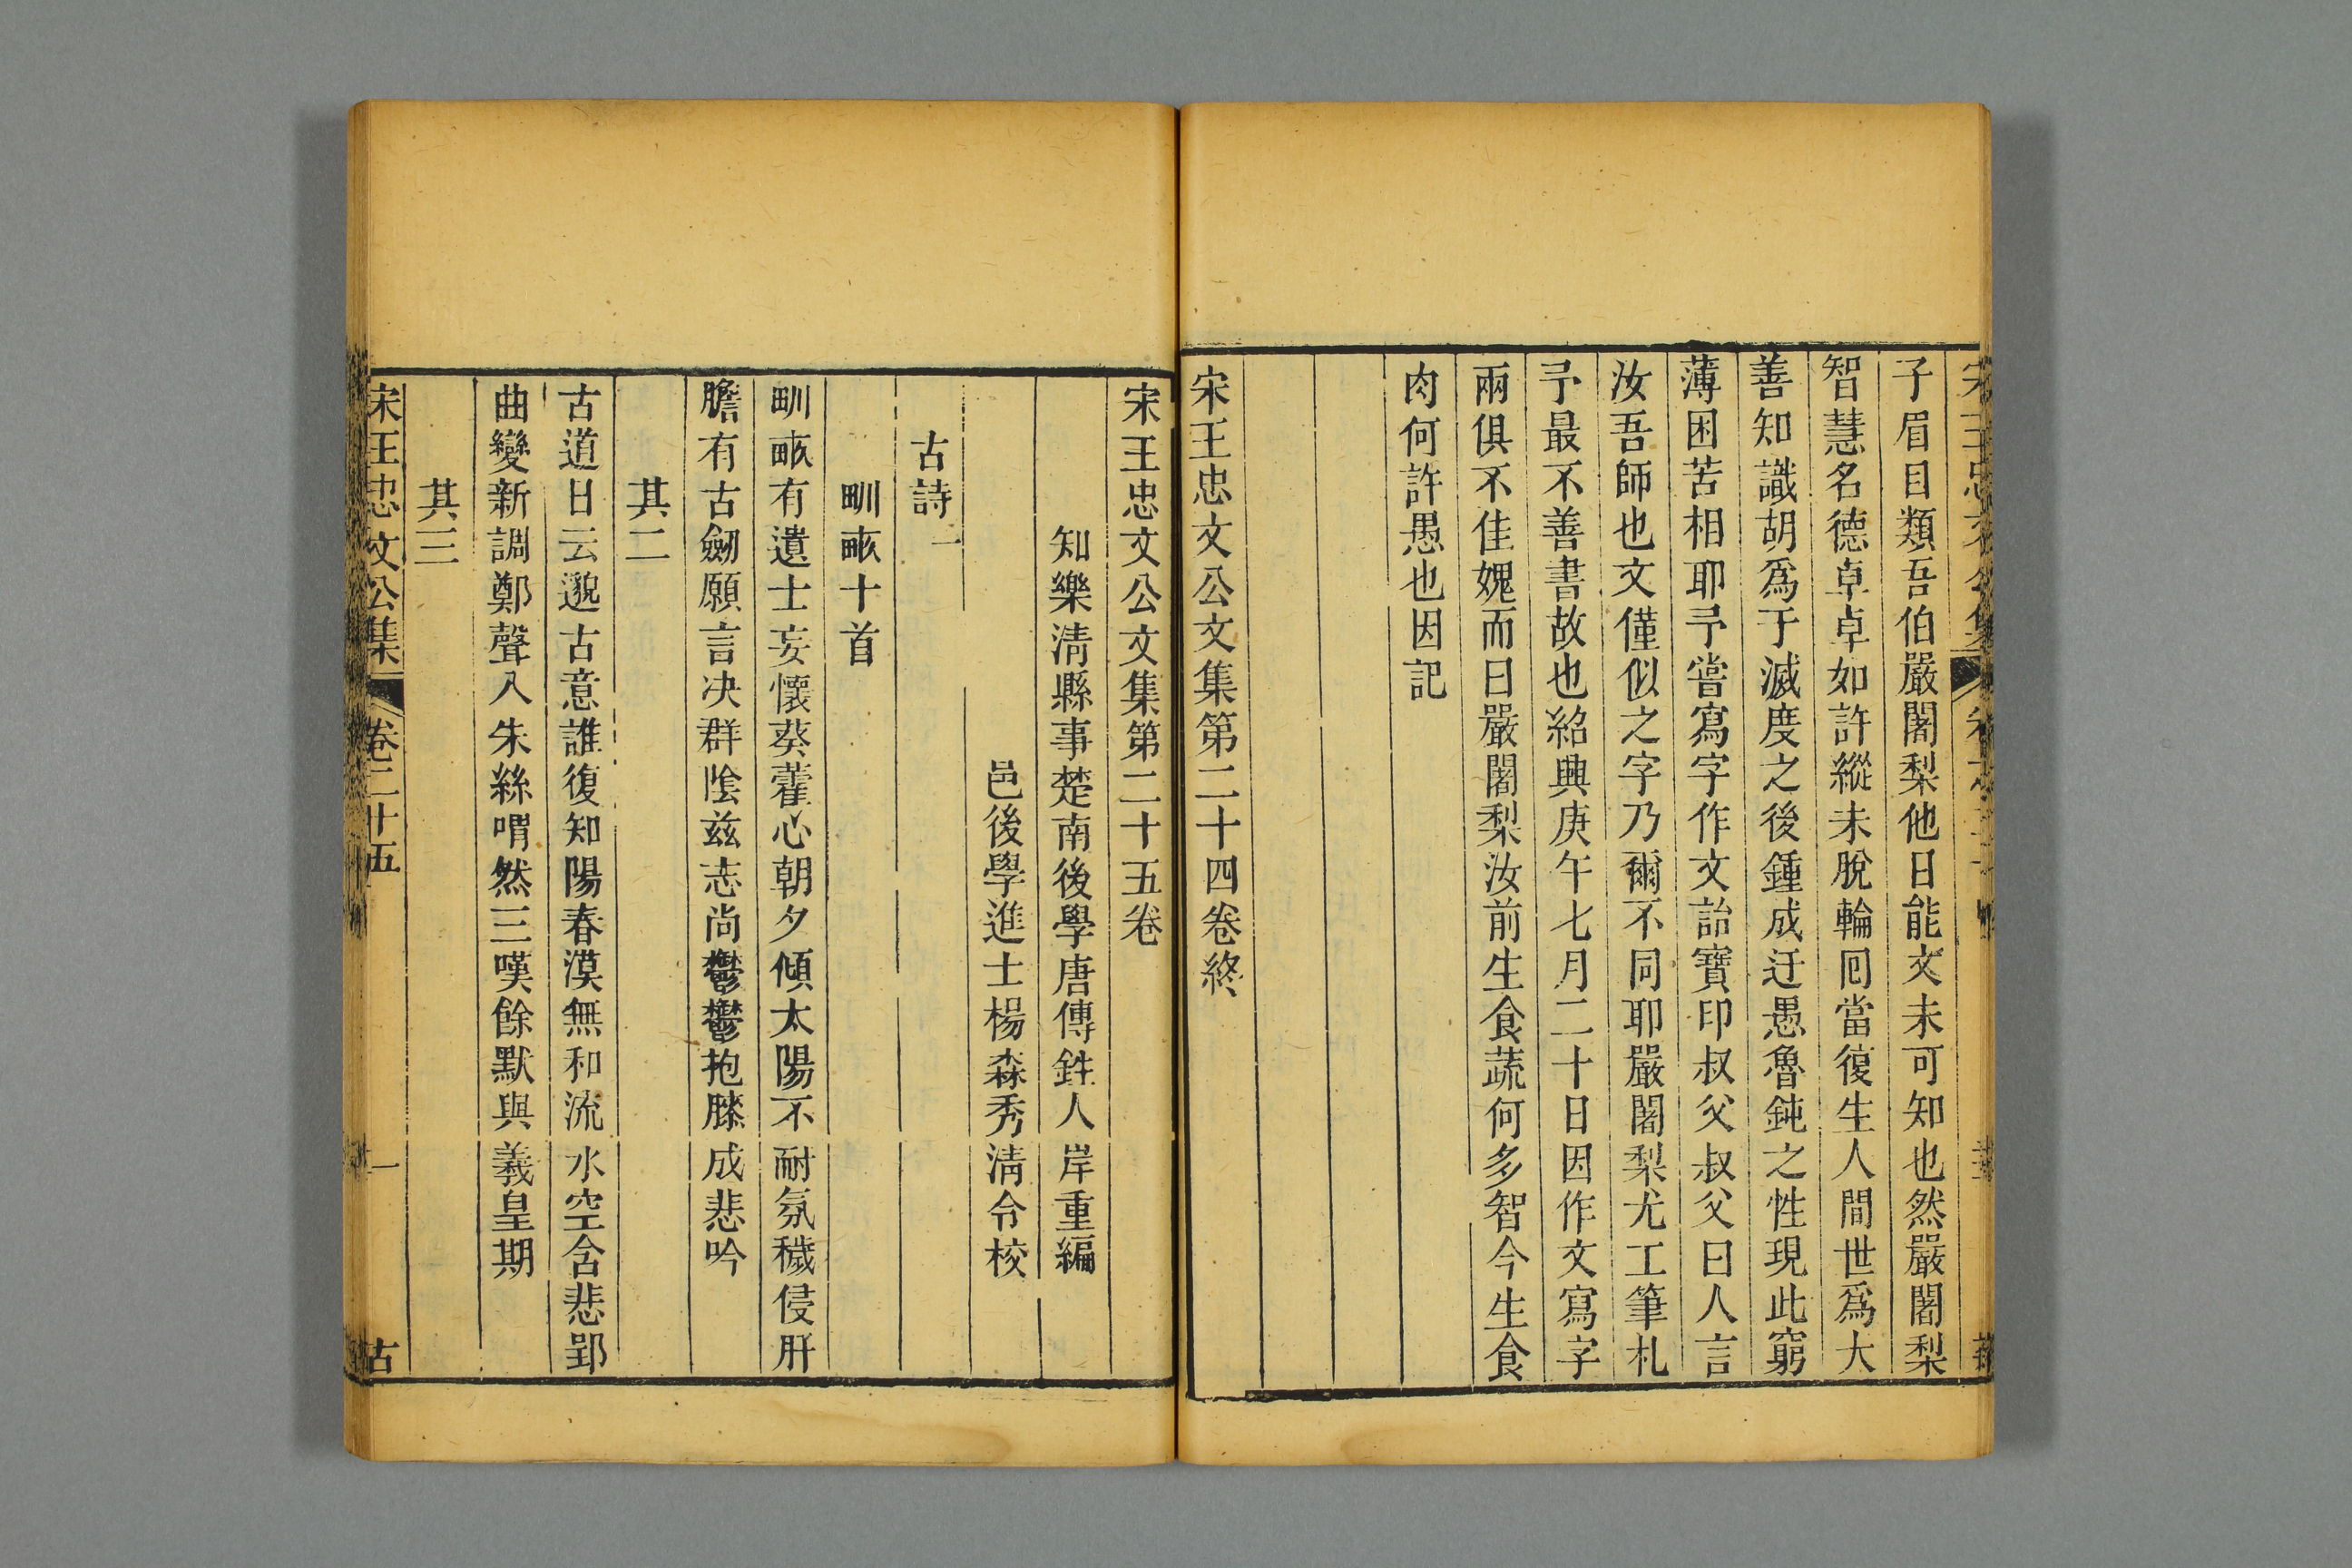 子眉目類吾伯嚴闍梨他日能文未可知也然嚴闍梨
智慧名德卓卓如許縱未脫輪囘當復生人間世爲大
善知識胡爲于滅度之後鍾成迂愚魯鈍之性現此窮
薄困苦相耶予嘗寫字作文詒寶印叔父叔父曰人言
汝吾師也文僅似之字乃爾不同耶嚴闍梨尤工筆札
予最不善書故也紹興庚午七月二十日因作文寫字
兩俱不佳媿而曰嚴闍梨汝前生食蔬何多智今生食
肉何許愚也因記
宋王忠文公文集第二十四卷終
宋王忠文公文集第二十五卷
知樂淸縣事楚南後學唐傳鉎人岸重編
邑後學進士楊森秀淸令校
古詩一
甽畞十首
甽畞有遺士妄懷葵藿心朝夕傾太陽不耐氛穢侵肝
膽有古劒願言决群陰兹志尚鬱鬱抱膝成悲吟
其二
古道日云邈古意誰復知陽春漠無和流水空含悲郢
曲變新調鄭聲入朱絲喟然三嘆餘默與羲皇期
其三
宋王忠文公集 卷二十五 一 古